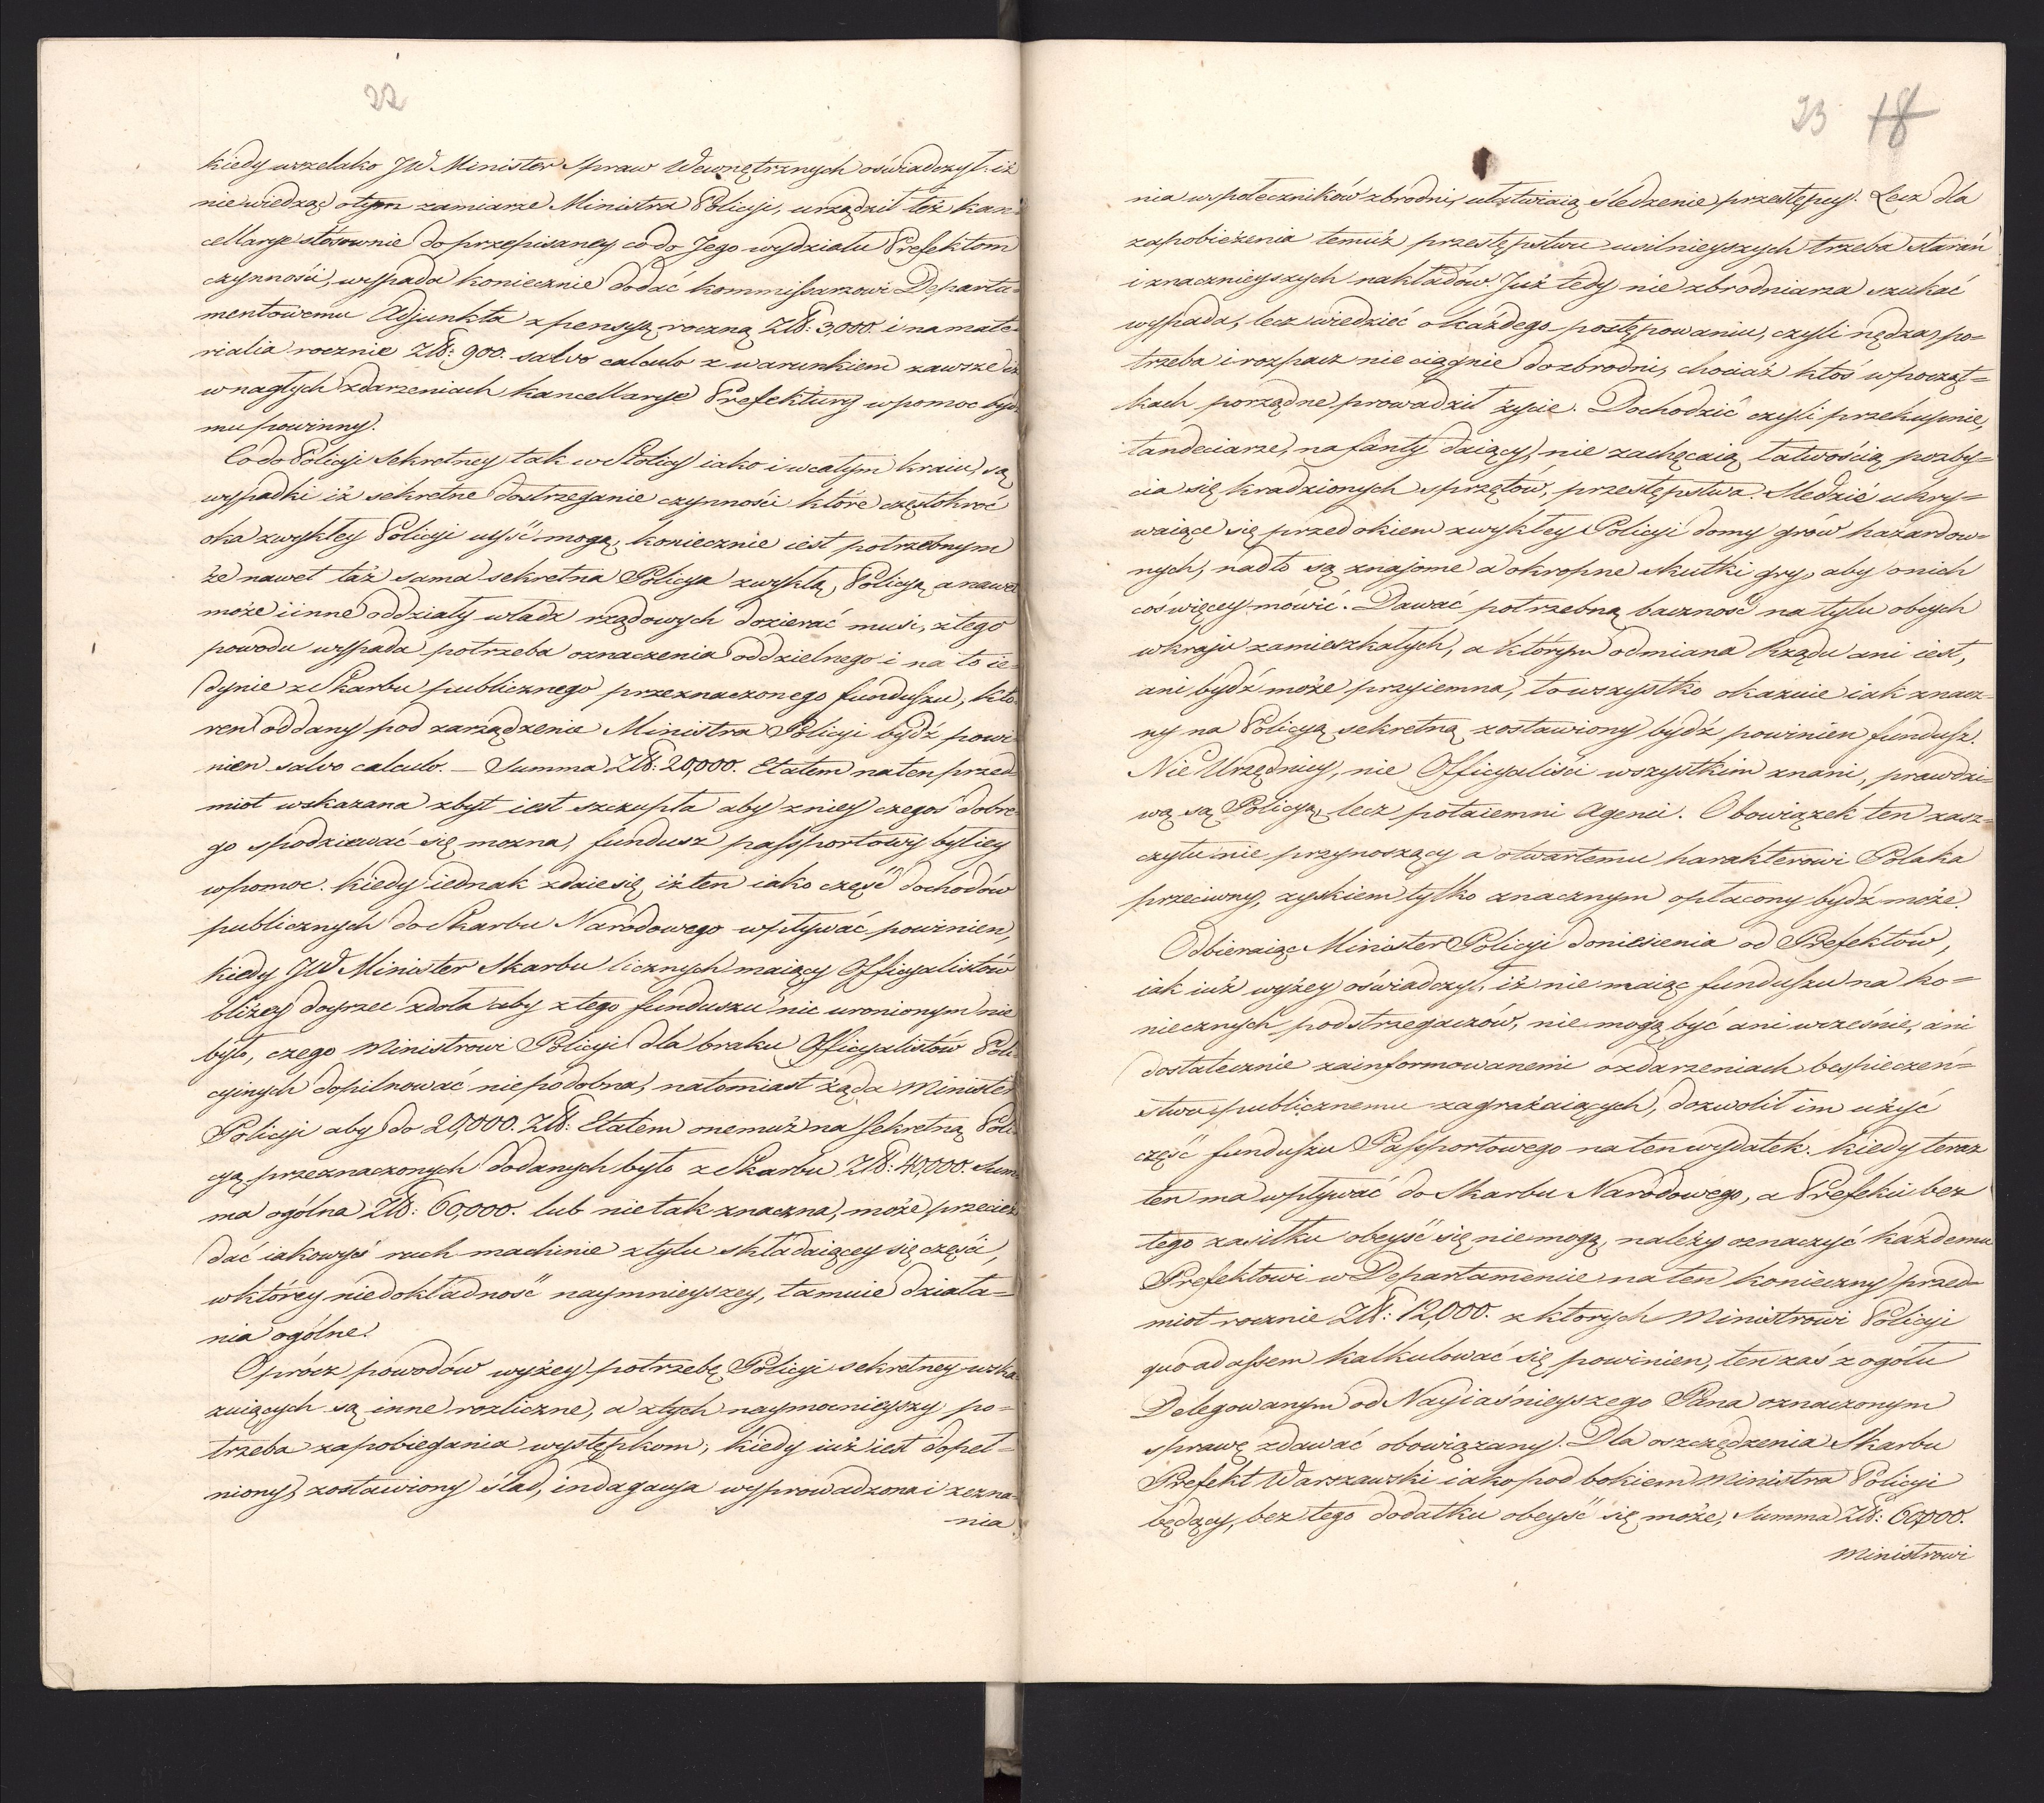 22
kiedy wszelako JW Minister Spraw Wewnętrznych oświadczył: iż
nie wiedząc otym zamiarze Ministra Policyi, urządził też kan=
cellarye stósownie do przepisaney co do Jego wydziału Prefektom
czynności, wypada koniecznie dodać kommissarzowi Departa=
mentowemu Adjunkta z pensyą roczną Zł: 3,000. i na mate=
rialia rocznie Zł: 900. salvo calculo z warunkiem zawsze iż
w nagłych zdarzeniach kancellarye Prefektury w pomoc bydź
mu powinny.
Co do Policyi Sekretney tak w Stolicy iako i w całym kraiu, są
wypadki iż sekretne dostrzeganie czynności które częstokroć
oka zwykłey Policyi uyść mogą, koniecznie iest potrzebnym
że nawet taż sama sekretna Policya zwykłą Policyą a nawet
może i inne oddziały władz rządowych dozierać musi, z tego
powodu wypada potrzeba oznaczenia oddzielnego i na to ie=
dynie z Skarbu publicznego przeznaczonego funduszu, któ=
ren oddany pod zarządzenie Ministra Policyi bydź powi=
nien salvo calculo. — Summa Zł: 20,000. Etatem na ten przed=
miot wskazana zbyt iest szczupła aby z niey czegoś dobre=
go spodziewać się można, fundusz passportowy był iey
w pomoc. kiedy iednak zdaie się, iż ten iako część dochodów
publicznych do Skarbu Narodowego wpływać powinien,
kiedy JW Minister Skarbu licznych maiący Officyalistów
bliżey doyrzec zdoła aby z tego funduszu nic uronionym nie
było, czego Ministrowi Policyi dla braku Officyalistów Poli=
cyinych dopilnować niepodobna, natomiast żąda Minister
Policyi aby do 20,000. Zł: Etatem onemuż na Sekretną Poli=
cyą przeznaczonych dodanych było z Skarbu Zł: 40,000. Sum=
ma ogólna Zł: 60,000. lub nie tak znaczna, może przecież
dać iakowyś ruch machinie z tylu składaiącey się części,
w którey niedokładność naymnieyszey, tamuie działa=
nia ogólne.
Oprócz powodów wyżey potrzebę Policyi sekretney wska=
zuiących są inne rozliczne, a z tych naymocnieyszy po=
trzeba zapobiegania występkom, kiedy iuż iest dopeł=
niony, zostawiony ślad, indagacya wyprowadzona i zezna=
nia
23 18
nia wspołeczników zbrodni, ułatwiaią śledzenie przestępcy. Lecz dla
zapobieżenia temuż przestępstwu usilnieyszych trzeba starań
i znacznieyszych nakładów. Już tedy nie zbrodniarza szukać
wypada, lecz wiedzieć o każdego postępowaniu, czyli nędza, po=
trzeba i rozpacz nie ciągnie do zbrodni, chociaż ktoś w począt=
kach porządne prowadził życie. Dochodzić czyli przekupnie,
tandeciarze, na fanty daiący, nie zachęcaią łatwością pozby=
cia się kradzionych sprzętów, przestępstwa. Śledzić ukry=
waiące się przed okiem zwykłey Policyi domy grów hazardow=
nych, nadto są znajome a okropne skutki gry, aby o nich
coś więcey mówić. Dawać potrzebną baczność na tylu obcych
w kraju zamieszkałych, a którym odmiana Rządu ani iest,
ani bydź może przyiemna, to wszystko okazuie iak znacz=
ny na Policyą sekretną zostawiony bydź powinien fundusz.
Nie Urzędnicy, nie Officyaliści wszystkim znani, prawdzi=
wą są Policyą, lecz potaiemni Agenci. Obowiązek ten zasz=
czytu nie przynoszący a otwartemu harakterowi Polaka
przeciwny, zyskiem tylko znacznym opłacony bydź może.
Odbieraiąc Minister Policyi doniesienia od Prefektów,
iak iuż wyżey oświadczył, iż nie maiąc funduszu na ko=
niecznych podstrzegaczów, nie mogą być ani wcześnie, ani
dostatecznie zainformowanemi o zdarzeniach bespieczeń=
stwu publicznemu zagrażaiących, dozwolił im użyć
część funduszu Passportowego na ten wydatek. Kiedy teraz
ten ma wpływać do Skarbu Narodowego, a Prefekci bez
tego zasiłku obeyść się nie mogą, należy oznaczyć każdemu
Prefektowi w Departamencie na ten konieczny przed=
miot rocznie Zł: 12,000. z których Ministrowi Policyi
quo ad assem kalkulować się powinien, ten zaś z ogółu
Delegowanym od Nayiaśnieyszego Pana oznaczonym
sprawę zdawać obowiązany. Dla oszczędzenia Skarbu
Prefekt Warszawski iako pod bokiem Ministra Policyi
będący, bez tego dodatku obeyść się może, Summa Zł: 60,000.
Ministrowi